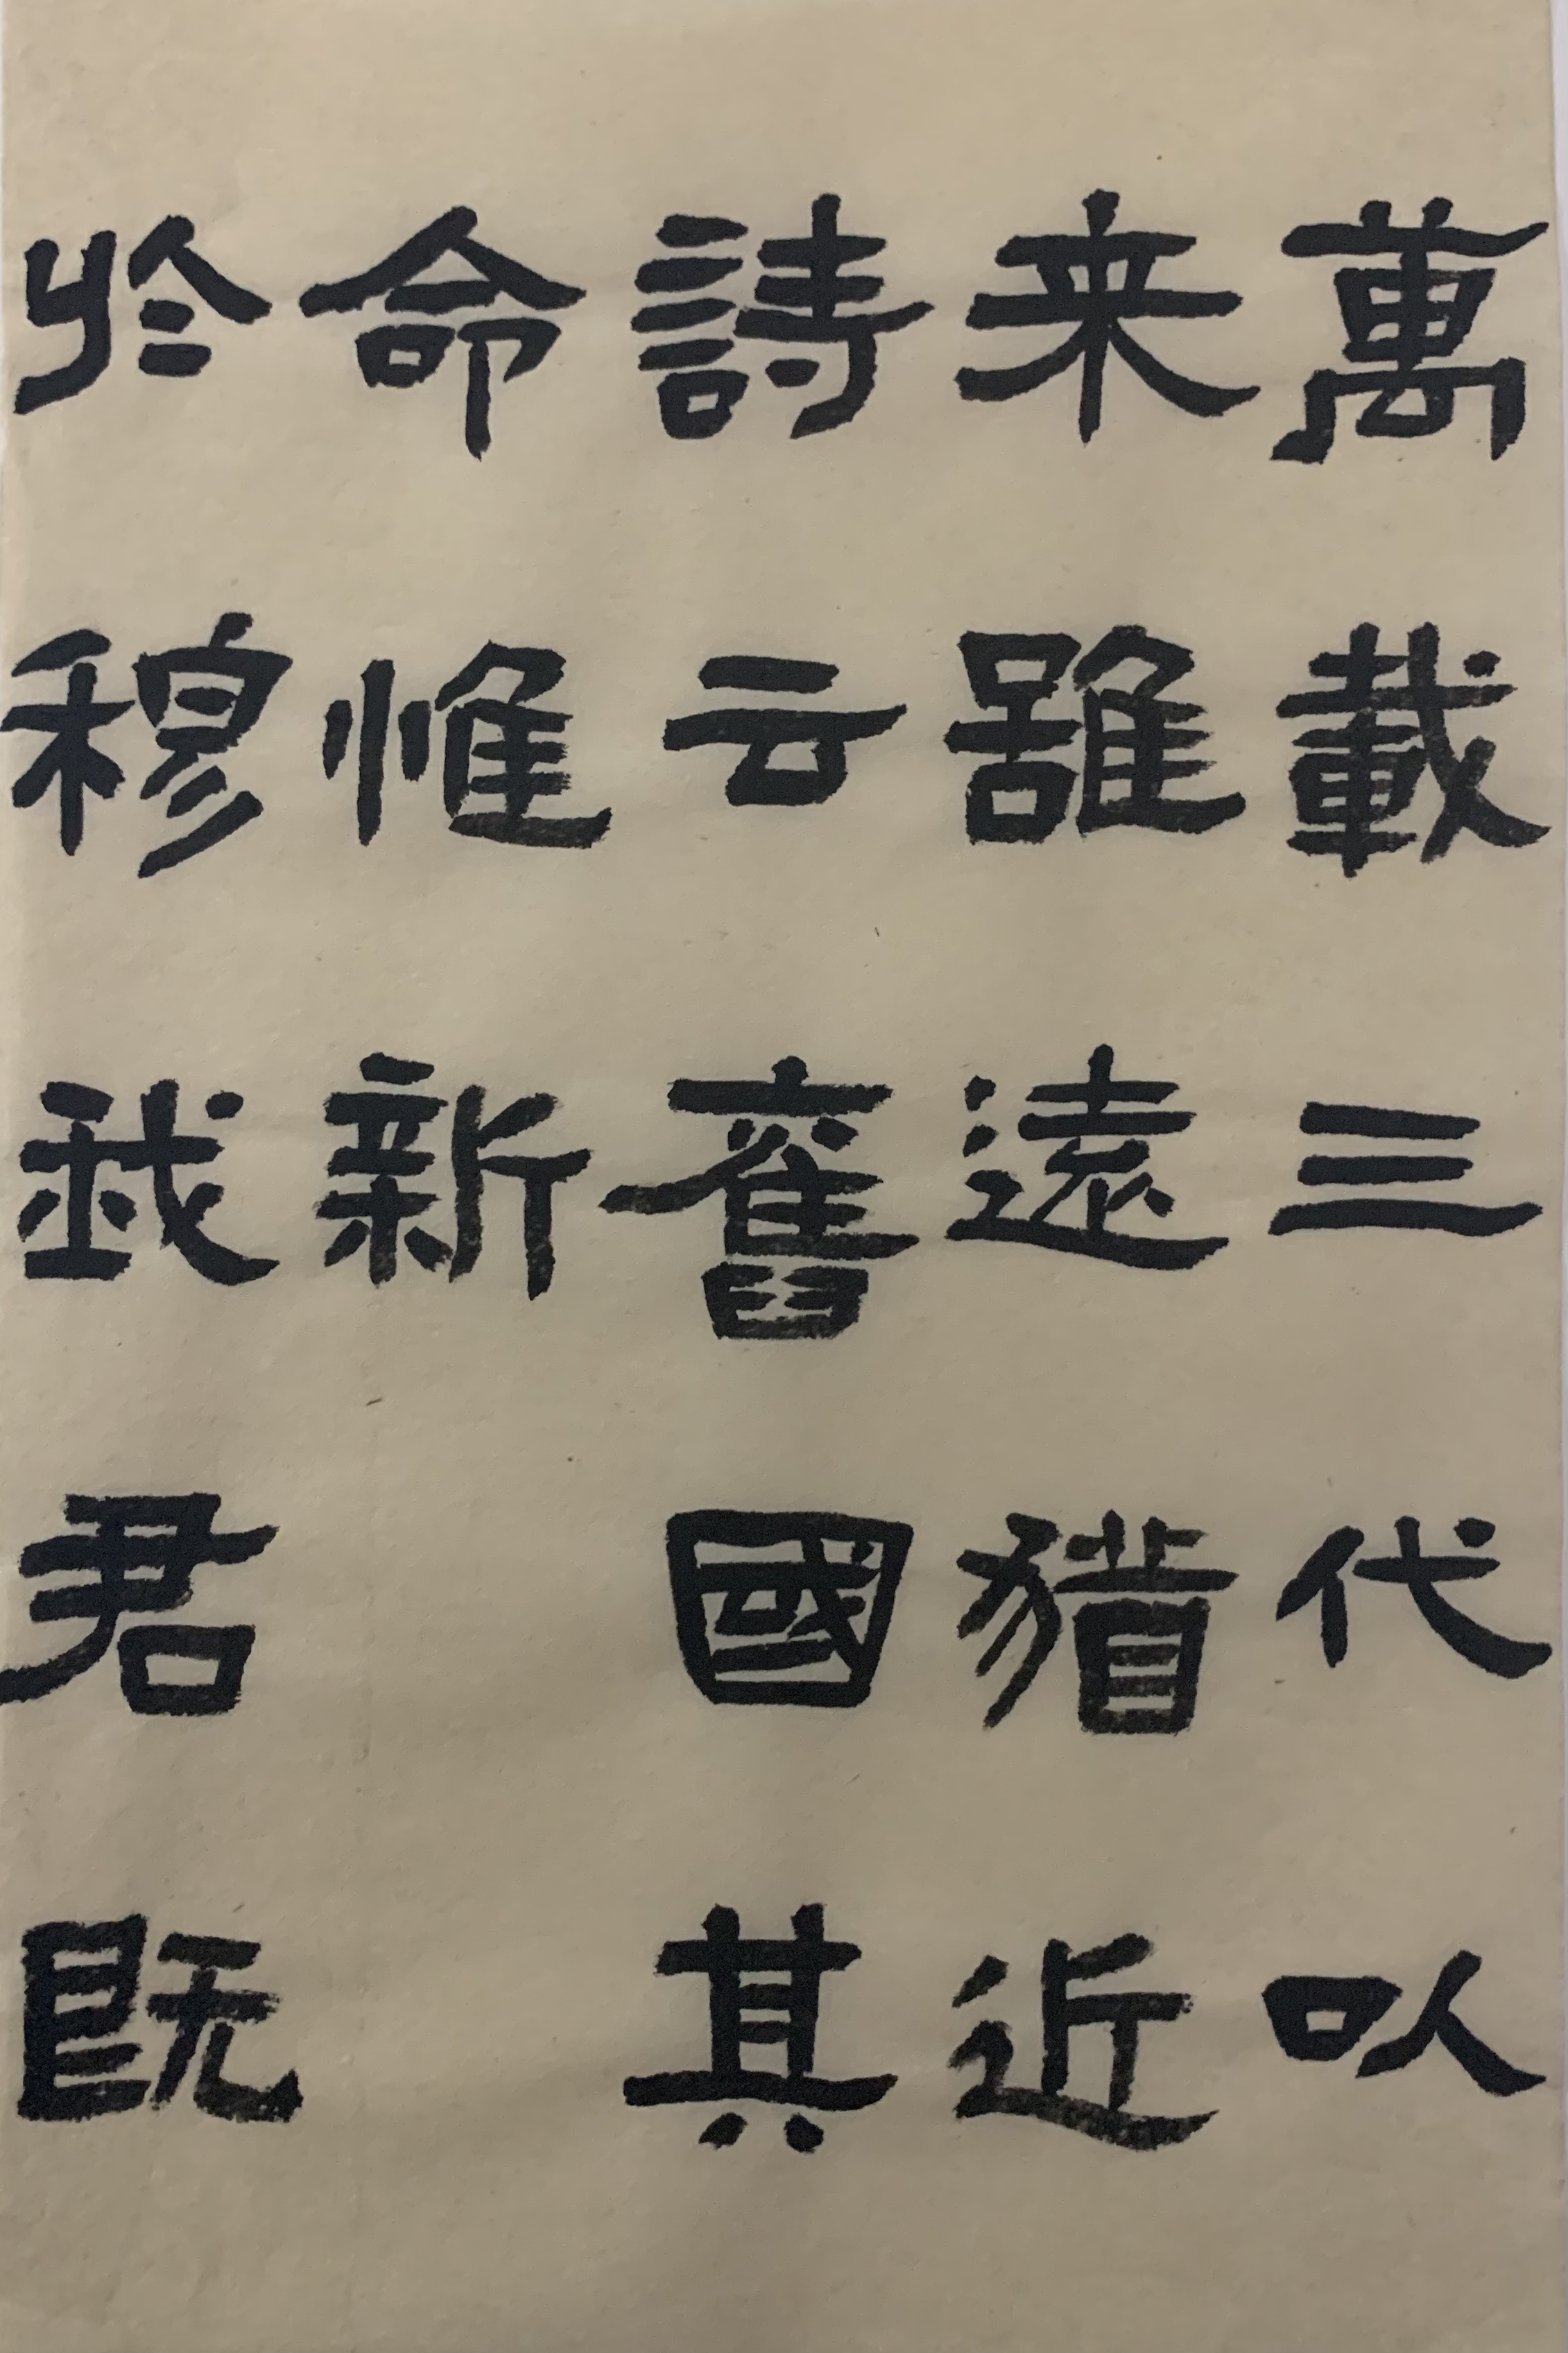 萬載三代以
来雖遠猶近
詩云舊國其
命惟新
於穆我君既